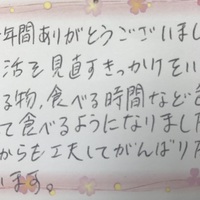 年間ありがとうございまし
活を見直すきっかけをい
る物、食べる時間など
て食べるようになりました
からも工夫してがんばりた
います。